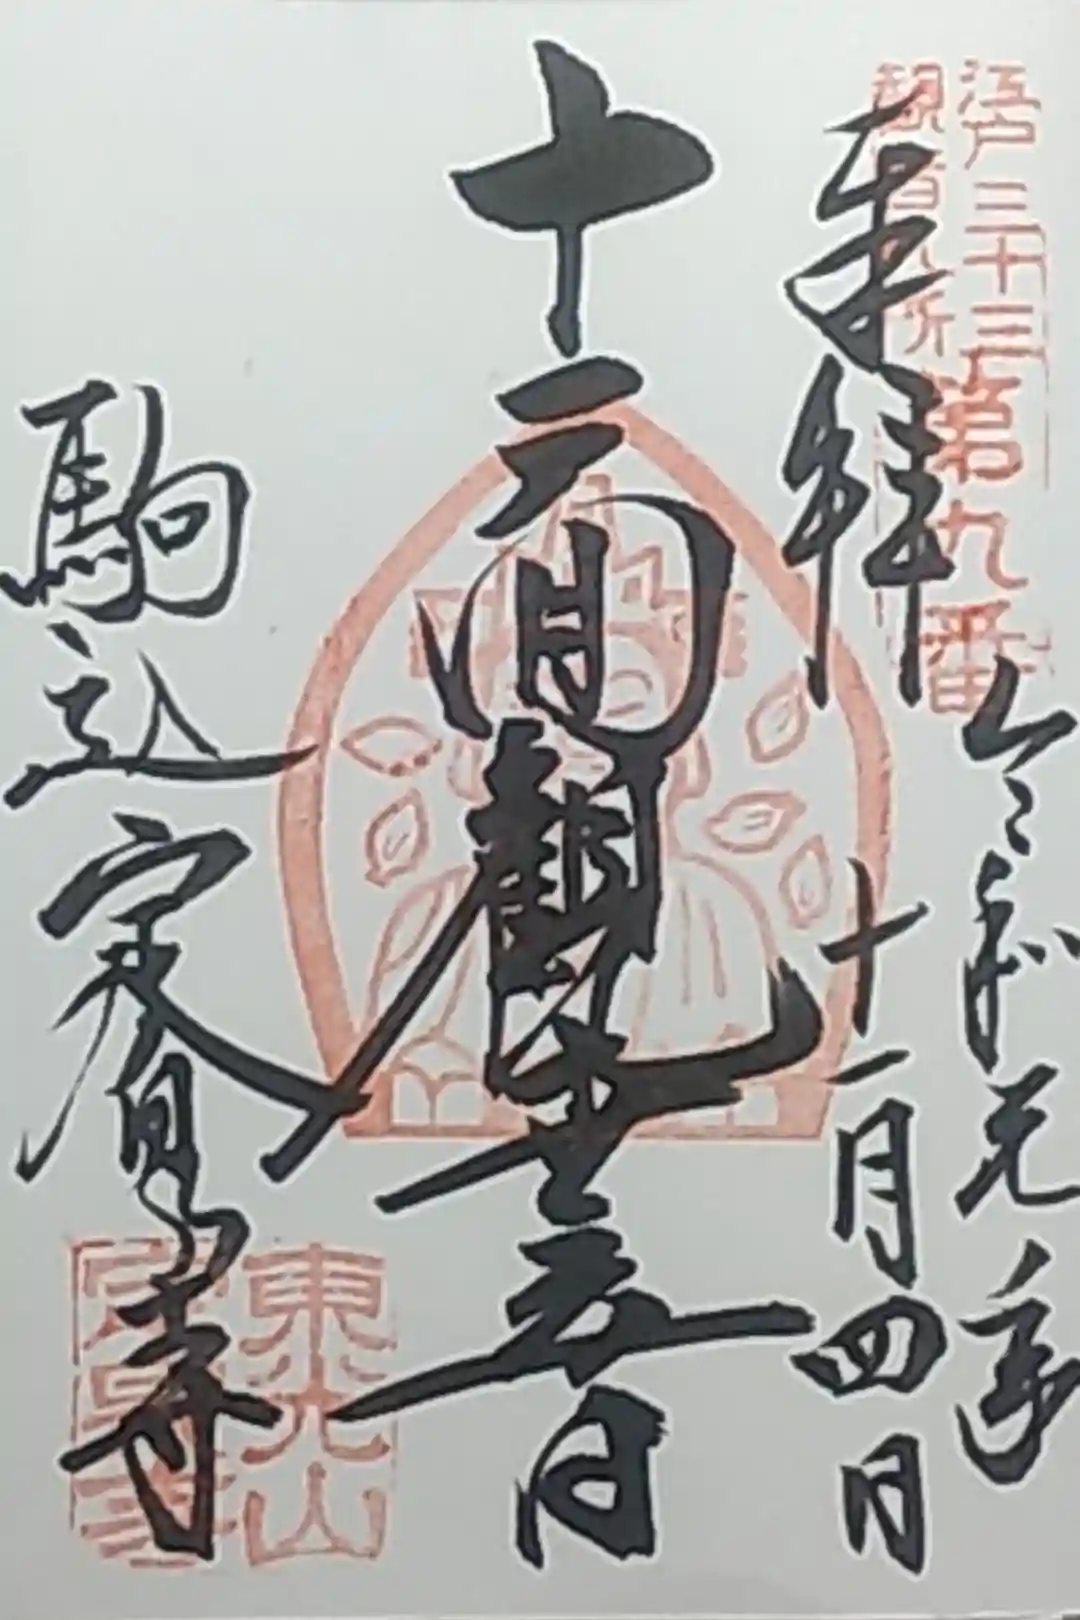 江戸三十三
観音札所
第九番
奉拝
令和元年
十一月四日
十一面觀世音
駒込定泉寺
東光山
定泉寺